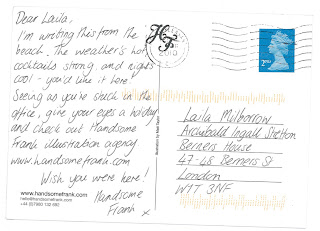 Dear Laila,
I'm writing this from the
beach. The weather's hot,
cocktails strong and nights
cool – you'd like it here.
Seeing as you're stuck in the
office, give your eyes a holiday
and check out Handsome
Frank illustration agency
www.handsomefrank.com
Wish you were here!
Handsome
Frank x
www.handsomefrank.com
HF
2010
2ND
Laila Milborrow
Archibald Ingall Stretton
Berners House
47-48 Berners St
London
W1T 3NF